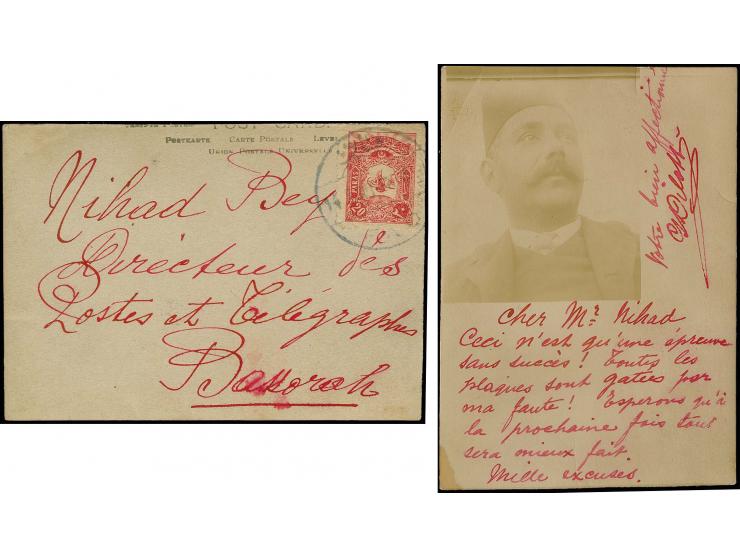 POST CARD.
POSTKARTE CARTE POSTALE
UNION POSTALE UNIVERSELLE
20 PARAS
Nihad Bey
le
Directeur des
Postes et Télégraphes
Bassorah
Votre bien affectionné
Cher Mr. Nihad
Ceci n'est qu'une épreuve
sans succès! Toutes les
plaques sont gatées par
ma faute! Esperons qu'à
la prochaine fois tout
sera mieux fait.
Mille excuses.